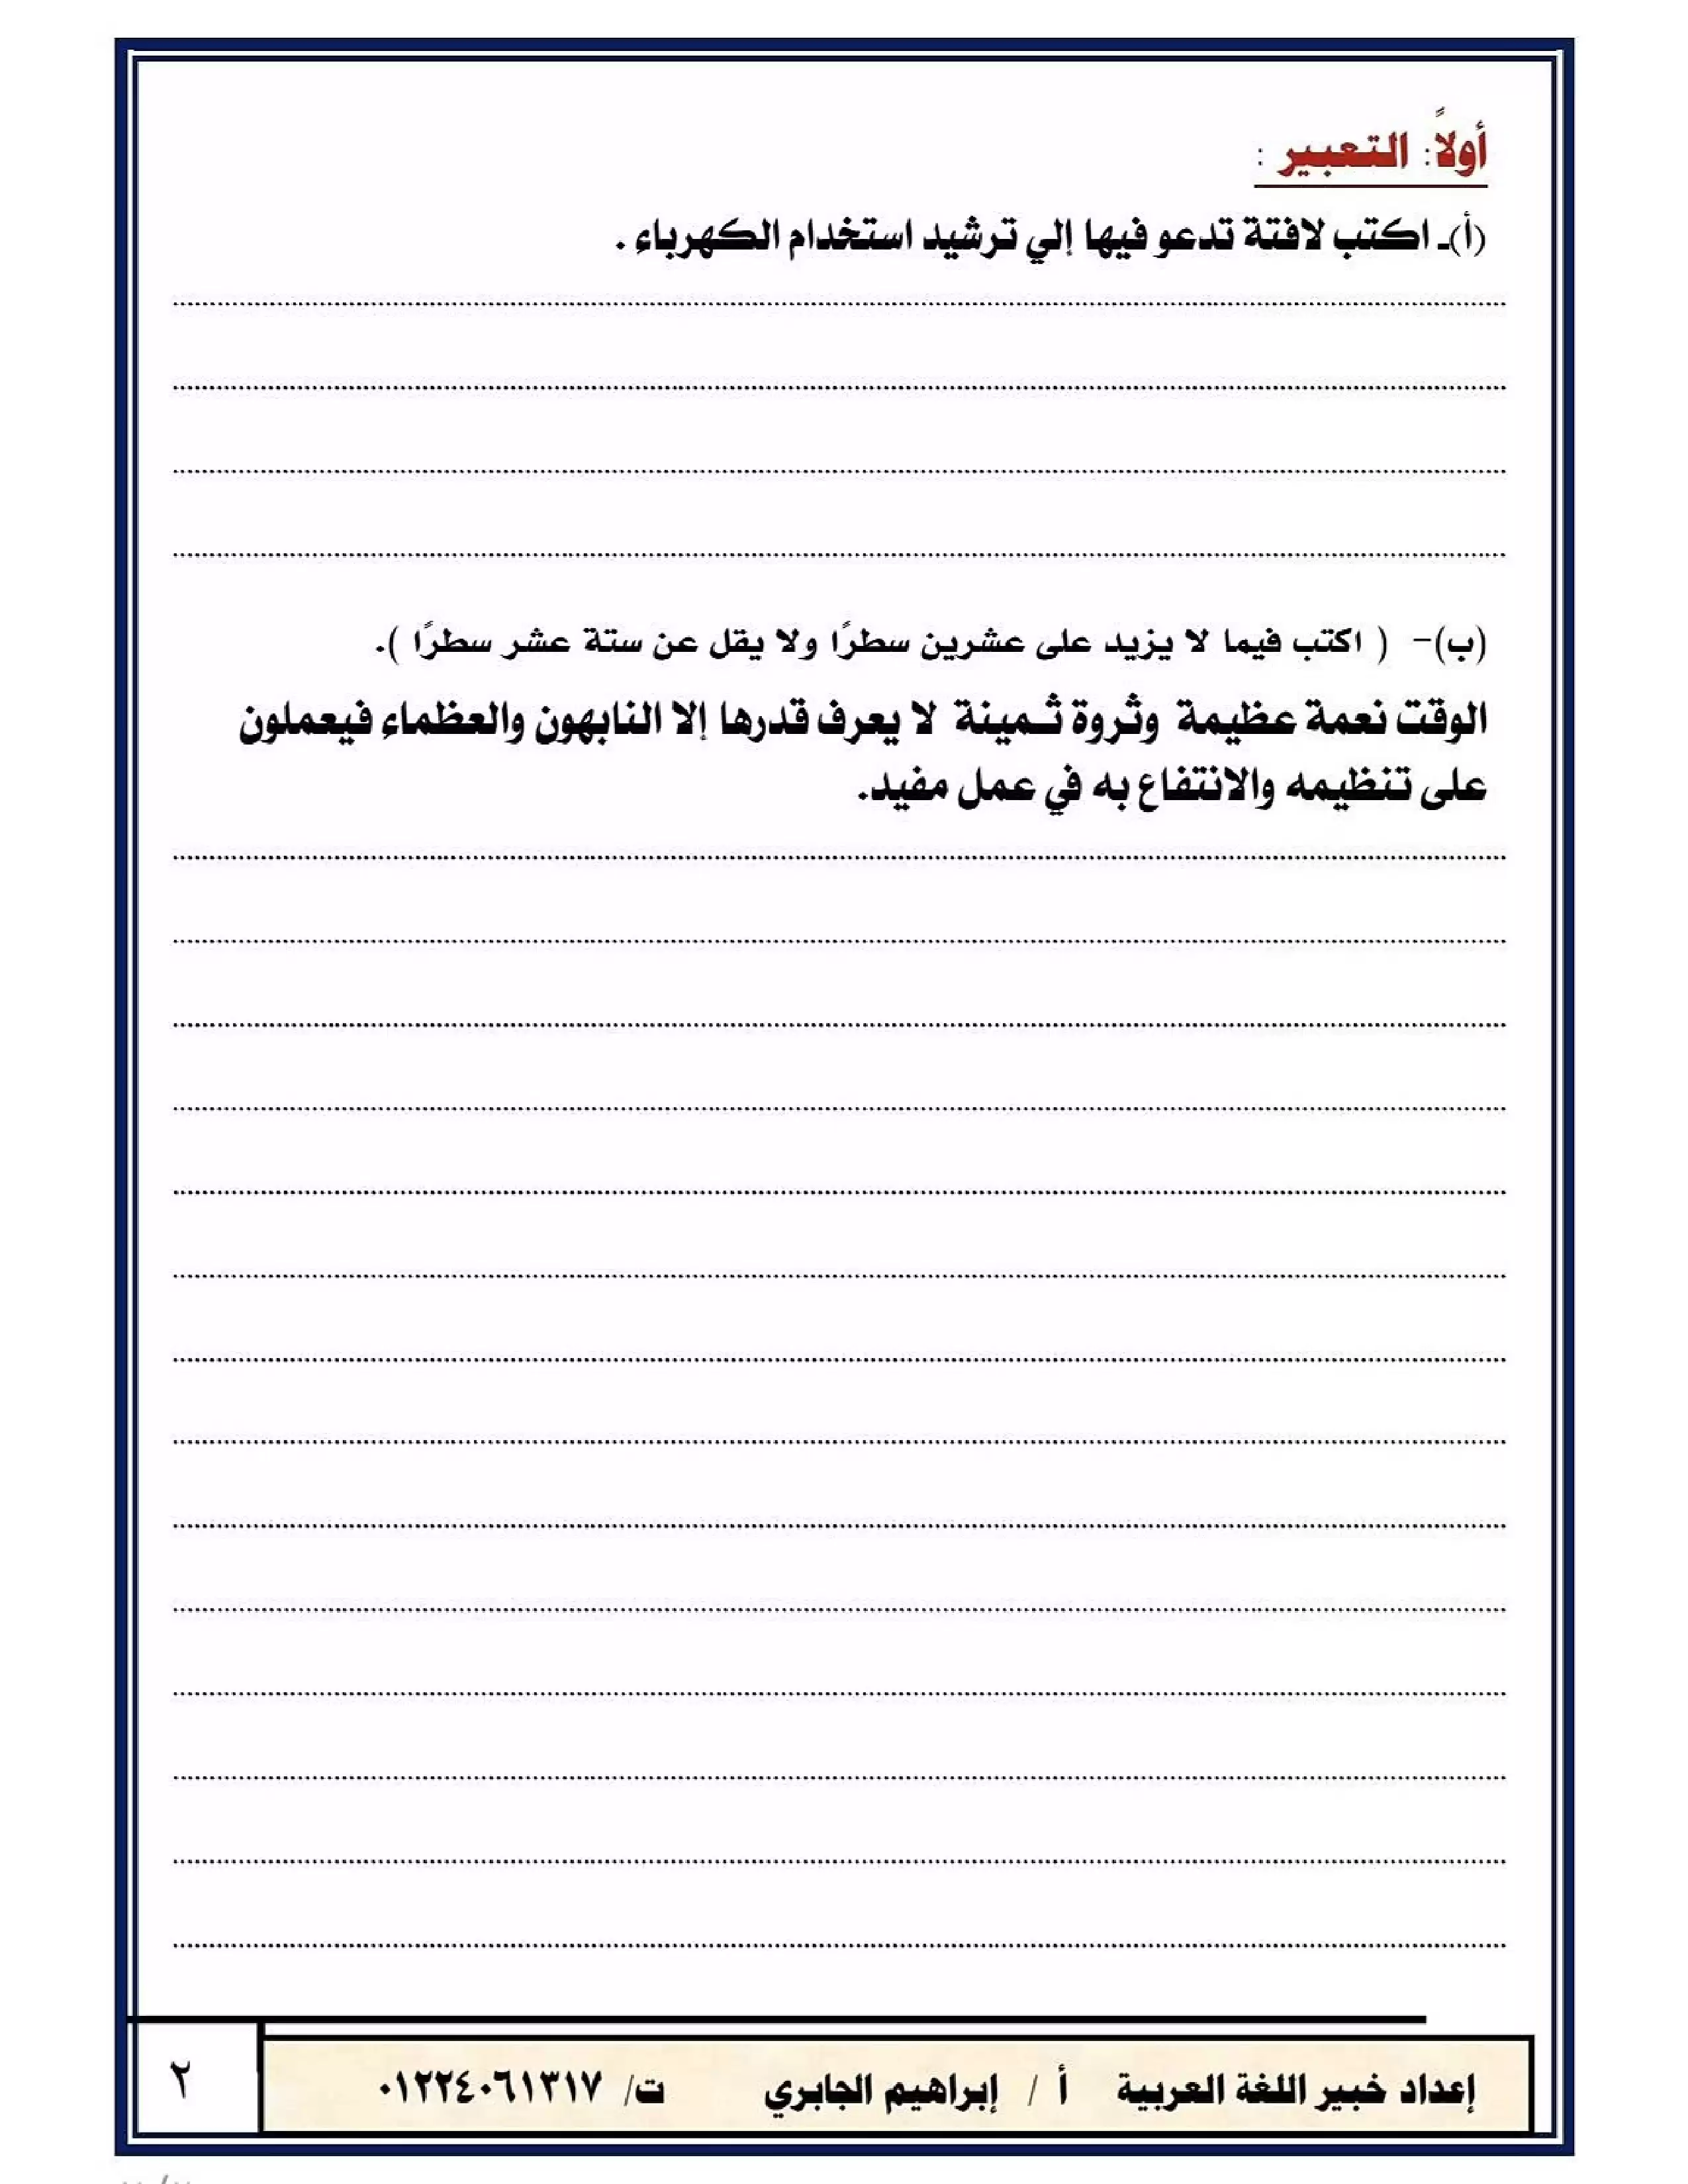 أولاً: التعبير :
(أ)ـ اكتب لافتة تدعو فيها إلي ترشيد استخدام الكهرباء .
(ب)- ( اكتب فيما لا يزيد على عشرين سطرًا ولا يقل عن ستة عشر سطرًا ).
الوقت نعمة عظيمة وثروة ثـمينة لا يعرف قدرها إلا النابهون والعظماء فيعملون
على تنظيمه والانتفاع به في عمل مفيد.
إعداد خبير اللغة العربية أ / إبراهيم الجابري ت/ ٠١٢٢٤٠٦١٣١٧
٢